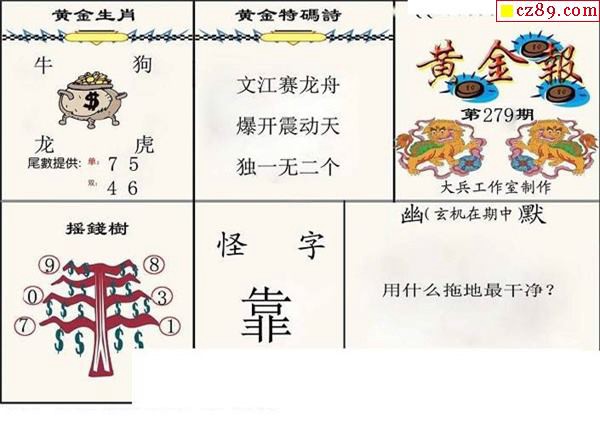 黄金生肖
牛 狗
龙 虎
尾數提供: 单: 7 5
双: 4 6
黄金特碼詩
文江赛龙舟
爆开震动天
独一无二个
cz89.com
黄金報
第279期
大兵工作室制作
摇錢樹
9 8
0 3
7 1
怪 字
靠
幽(玄机在期中)默
用什么拖地最干净?